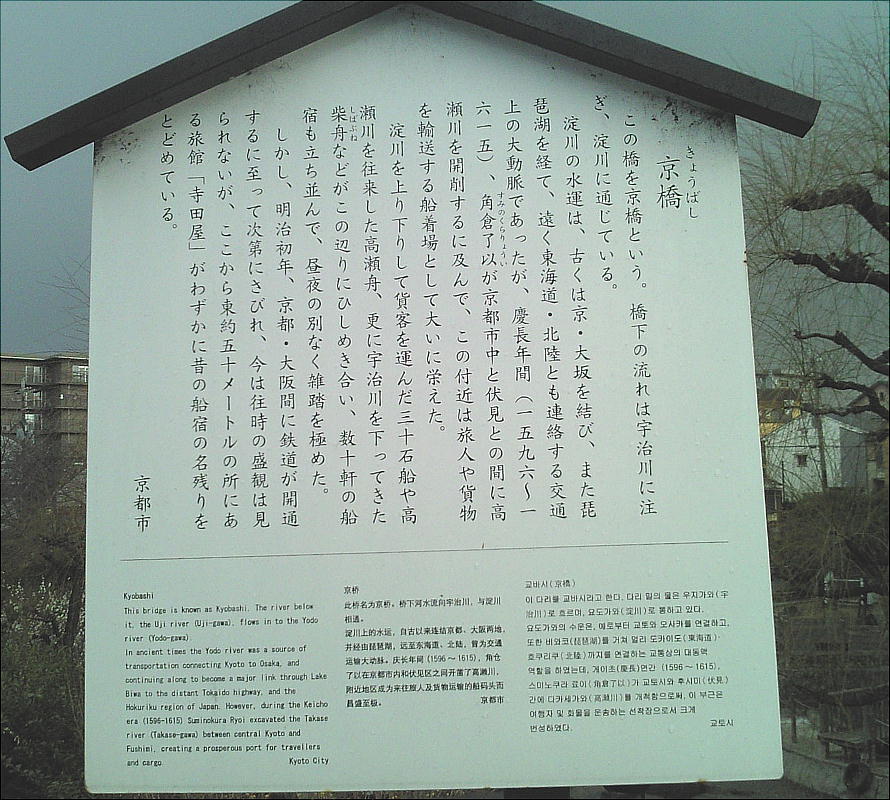 きょうばし
京橋
この橋を京橋という。橋下の流れは宇治川に注
ぎ、淀川に通じている。
淀川の水運は、古くは京・大坂を結び、また琵
琶湖を経て、遠く東海道・北陸とも連絡する交通
上の大動脈であったが、慶長年間（一五九六～一
六一五）、角倉了以が京都市中と伏見との間に高
すみのくらりょうい
瀬川を開削するに及んで、この付近は旅人や貨物
を輸送する船着場として大いに栄えた。
淀川を上り下りして貨客を運んだ三十石船や高
瀬川を往来した高瀬舟、更に宇治川を下ってきた
しばぶね
柴舟などがこの辺りにひしめき合い、数十軒の船
宿も立ち並んで、昼夜の別なく雑踏を極めた。
しかし、明治初年、京都・大阪間に鉄道が開通
するに至って次第にさびれ、今は往時の盛観は見
られないが、ここから東約五十メートルの所にあ
る旅館「寺田屋」がわずかに昔の船宿の名残りを
とどめている。
京都市
Kyobashi
This bridge is known as Kyobashi. The river below
it, the Uji river (Uji-gawa), flows in to the Yodo
river (Yodo-gawa).
In ancient times the Yodo river was a source of
transportation connecting Kyoto to Osaka, and
continuing along to become a major link through Lake
Biwa to the distant Tokaido highway, and the
Hokuriku region of Japan. However, during the Keicho
era (1596-1615) Suminokura Ryoi excavated the Takase
river (Takase-gawa) between central Kyoto and
Fushimi, creating a prosperous port for travellers
and cargo.
Kyoto City
京桥
此桥名为京桥。桥下河水流向宇治川，与淀川
相通。
淀川上的水运，自古以来连结京都、大阪两地，
并经由琵琶湖，远至东海道、北陆，曾为交通
运输大动脉。庆长年间（1596～1615），角仓
了以在京都市内和伏见区之间开凿了高濑川，
附近地区成为来往旅人及货物运输的船码头而
昌盛至极。
京都市
교바시(京橋)
이 다리를 교바시라고 한다. 다리 밑의 물은 우지가와(宇
治川)로 흐르며, 요도가와(淀川)로 통하고 있다.
요도가와의 수운은, 예로부터 교토와 오사카를 연결하고,
또한 비와코(琵琶湖)를 거쳐 멀리 도카이도(東海道)·
호쿠리쿠(北陸)까지를 연결하는 교통상의 대동맥
역할을 하였는데, 게이쵸(慶長)연간 (1596～1615),
스미노쿠라 료이(角倉了以)가 교토시와 후시미(伏見)
간에 다카세가와(高瀬川)를 개척함으로써, 이 부근은
여행자 및 화물을 운송하는 선착장으로서 크게
번성하였다.
교토시